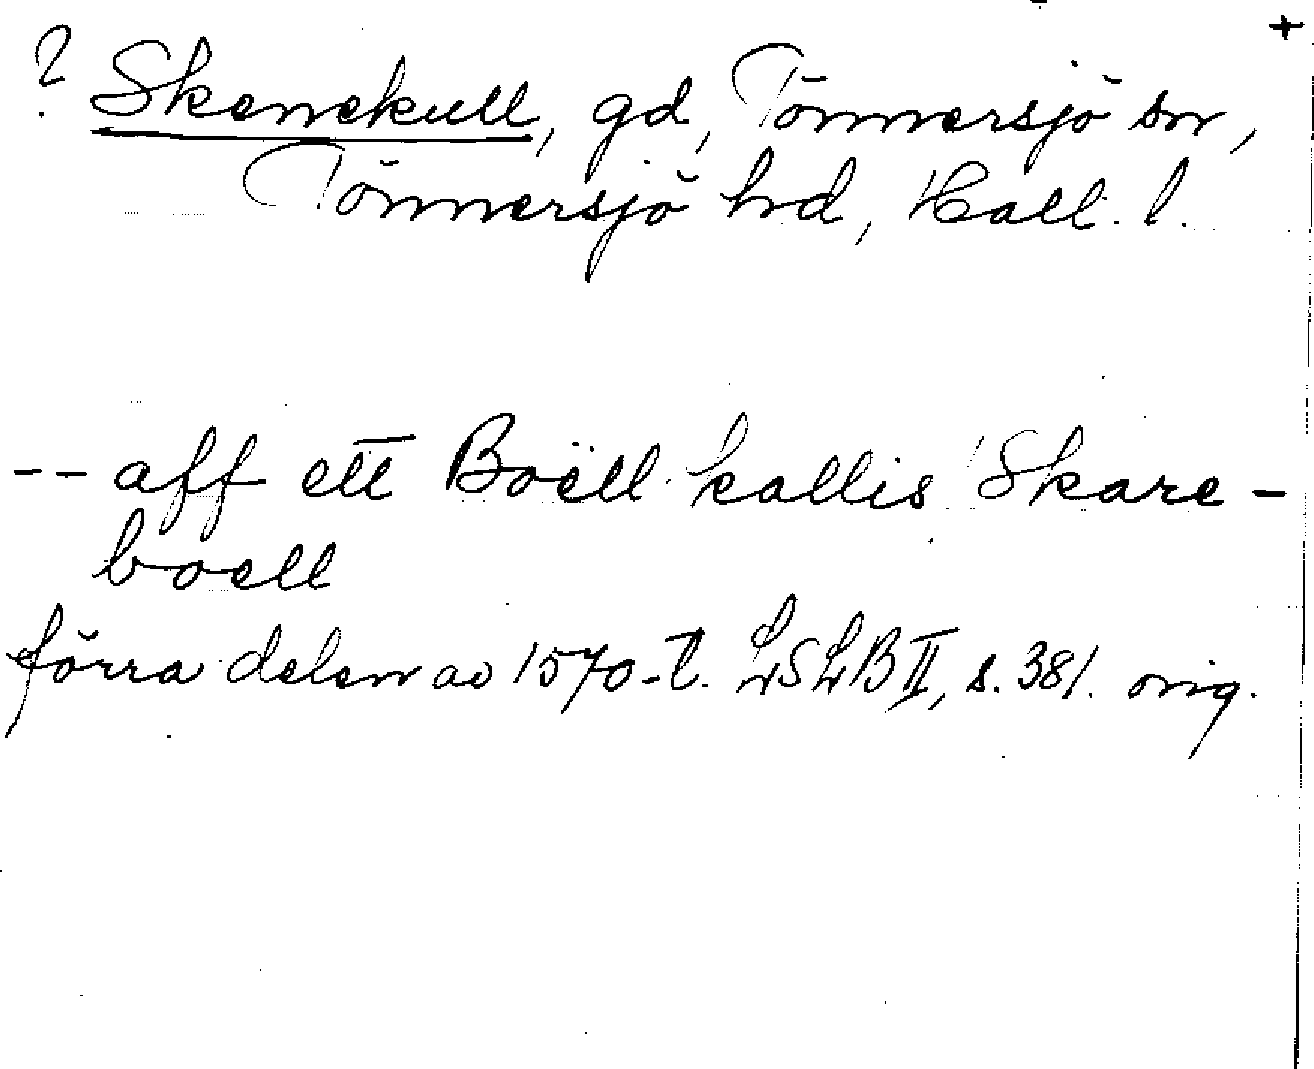 +
? Skenekull, gd, Tönnersjö sn,
Tönnersjö hd, Hall. l.
-- aff ett Boëll kallis Skare-
boell
förra delen av 1570-t. LSLB II, s. 381. orig.